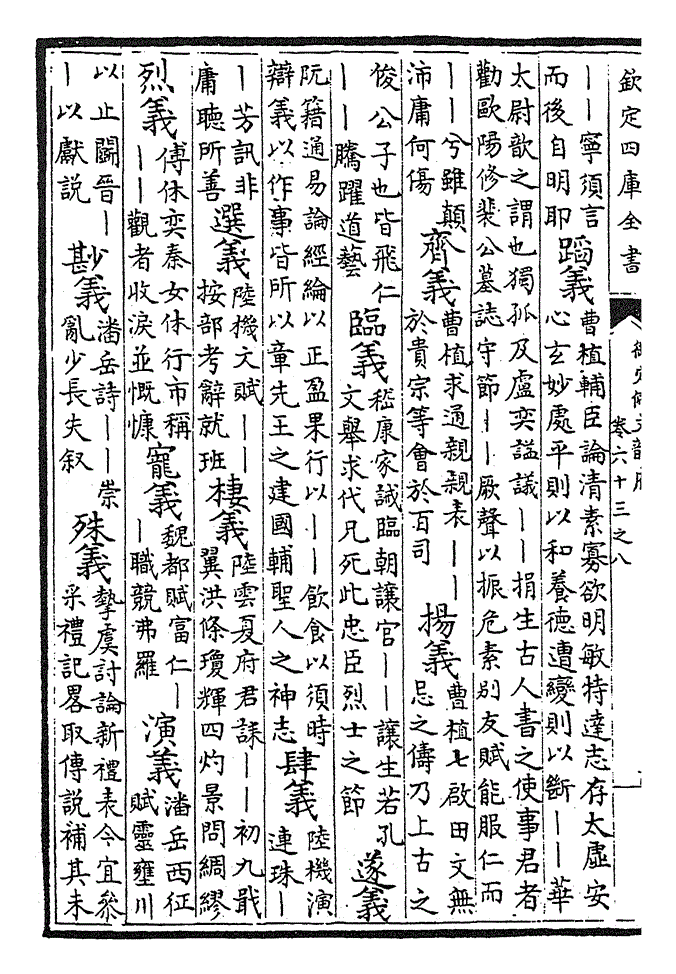 欽定四庫全書
御定佩文韻府 卷六十三之八
｜｜寧須言而後自明耶 蹈義 曹植輔臣論清素寡欲明敏特達志存太虛安心玄妙處平則以和養德遭變則以斷｜｜華
太尉歆之謂也獨孤及盧奕謚議｜｜捐生古人書之使事君者勸歐陽修裴公墓誌守節｜｜厥聲以振危素别友賦能服仁而
｜｜兮雖顛沛庸何傷 齊義 曹植求通親親表｜｜｜於貴宗等會於百司 揚義 曹植七啟田文無忌之儔乃上古之
俊公子也皆飛仁｜｜騰躍道藝 臨義 嵇康家誡臨朝讓官｜｜讓生若孔文舉求代兄死此忠臣烈士之節 遂義
阮籍通易論經綸以正盈果行以｜｜飲食以須時辯義以作事皆所以章先王之建國輔聖人之神志 肆義 陸機演連珠｜
｜芳訊非庸聽所善 選義 陸機文賦｜｜按部考辭就班 棲義 陸雲夏府君誄｜｜初九戢翼洪條瓊輝四灼景問綢繆
烈義 傅休奕秦女休行市稱｜｜觀者收淚並慨慷 寵義 魏都賦富仁｜｜職競弗羅 演義 潘岳西征賦靈壅川
以止鬭晉｜｜以獻説 尠義 潘岳詩｜｜崇亂少長失叙 殊義 摯虞討論新禮表今宜參采禮記畧取傳説補其未